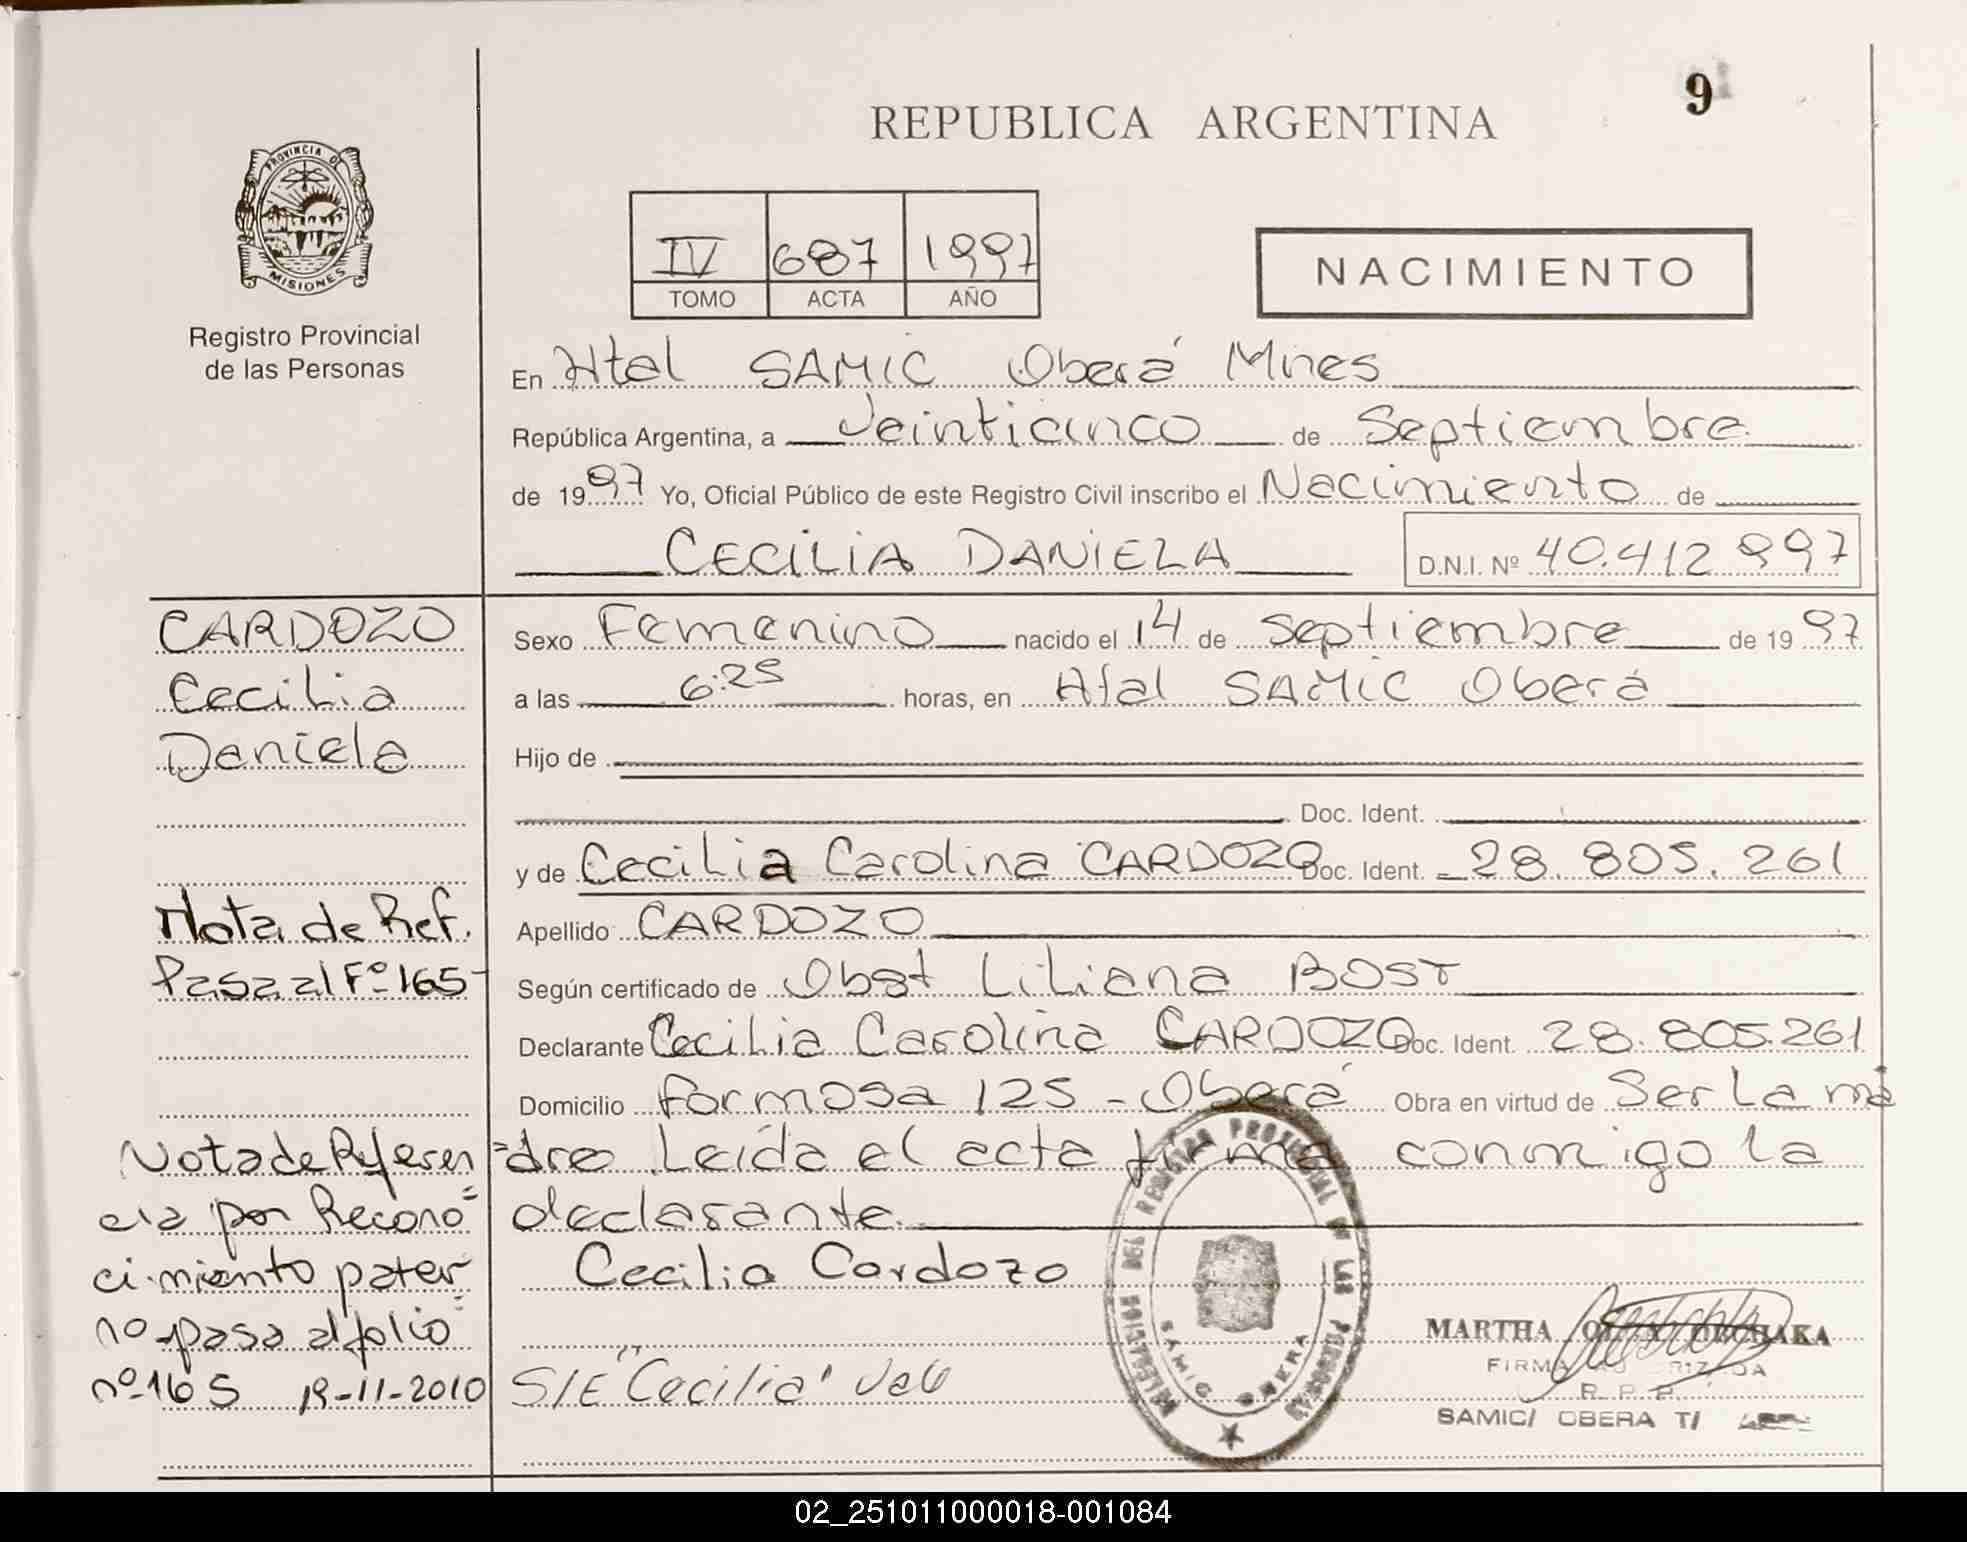 9
REPUBLICA ARGENTINA
PROVINCIA DE
MISIONES
Registro Provincial
de las Personas
IV 687 1997
TOMO ACTA AÑO
NACIMIENTO
En Htal SAMIC Oberá Mnes
República Argentina, a veinticinco de Septiembre
de 1997 Yo, Oficial Público de este Registro Civil inscribo el Nacimiento de
CECILIA DANIELA
D.N.I. Nº 40.412 997
CARDOZO
Cecilia
Daniela
Nota de Ref.
Pasa al Fº 165
Nota de Referen
cia por Recono=
cimiento pater=
no pasa al folio
nº 165 19-11-2010
Sexo Femenino nacido el 14 de Septiembre de 1997
a las 6:25 horas, en Htal SAMIC Oberá
Hijo de
Doc. Ident.
y de Cecilia Carolina CARDOZO Doc. Ident. 28.805.261
Apellido CARDOZO
Según certificado de Obst Liliana BOST
Declarante Cecilia Carolina CARDOZO Doc. Ident. 28.805.261
Domicilio Formosa 125 - Oberá Obra en virtud de Ser La ma
=dre Leída el acta firma conmigo la
declarante.
Cecilia Cardozo
S/E "Cecilia" Vale
DELEGACION DEL REGISTRO PROVINCIAL DE LAS PERSONAS
SAMIC OBERA
MARTHA
FIRMA
R. P. P.
SAMIC/ OBERA T/
02_251011000018-001084